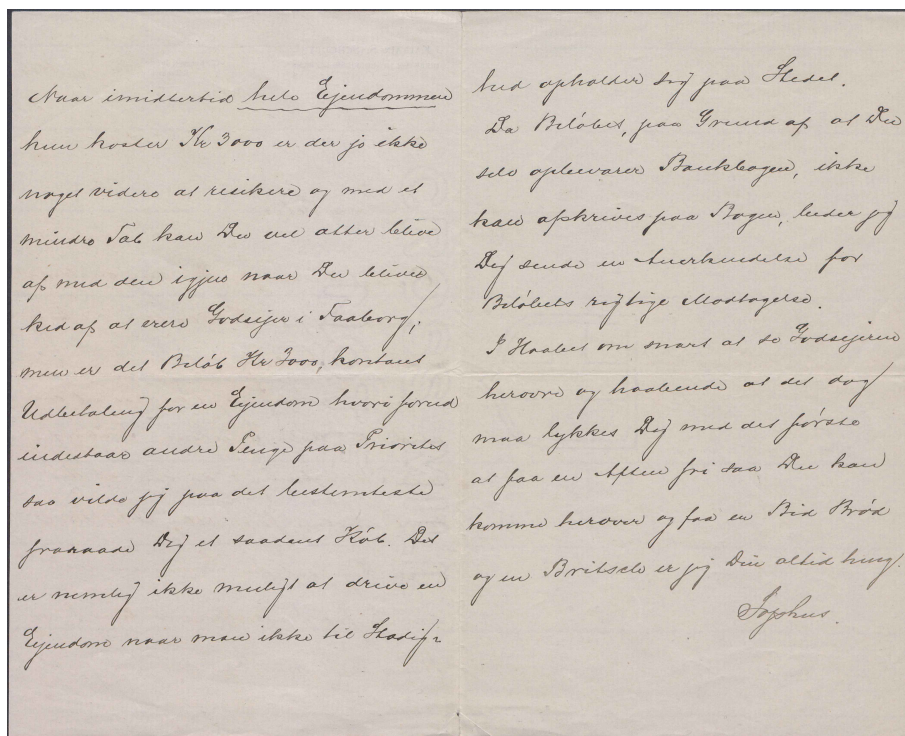 Naar imidlertid hele Ejendommen
kun koster Kr 3000 er der jo ikke
noget videre at resikere og med et
mindre Tab kan Du vel atter blive
af med den igjen naar Du bliver
ked af at være Godsejer i Faaborg;
men er det Beløb Kr 3000, kontant
Udbetaling for en Ejendom hvori forud
indestaar andre Penge paa Prioritet
saa vilde jeg paa det bestemteste
fraraade Dig et saadant Køb. Det
er nemlig ikke muligt at drive en
Ejendom naar man ikke til Stadig-
hed opholder sig paa Stedet.
Da Beløbet, paa Grund af at Du
selv opbevarer Bankbogen, ikke
kan afskrives paa Bogen, beder jeg
Dig sende en Anerkendelse for
Beløbets rigtige Modtagelse.
I Haabet om snart at se Godsejeren
herovre og haabende at det dog
maa lykkes Dig med det første
at faa en Aften fri saa Du kan
komme herover og faa en Bid Brød
og en Britsch er jeg Din altid heng.
Sophus.